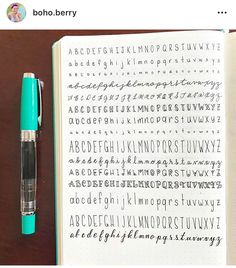 boho.berry
ABCDEFGHIJKLMNOPQRSTUVWXYZ
abcdefghijklmnopqrstuvwxyz
abcdefghijklmnopqrstuvwxyz
ABCDEFGHIJKLMNOPQRSTUVWXYZ
ABCDEFGHIJKLMNOPQRSTUVWXYZ
abcdefghijklmnopqrstuvwxyz
ABCDEFGHIJKLMNOPQRSTUVWXYZ
abcdefghijklmnopqrstuvwxyz
ABCDEFGHIJKLMNOPQRSTUVWXYZ
abcdefghijklmnopqrstuvwxyz
ABCDEFGHIJKLMNOPQRSTUVWXYZ
abcdefghijklmnopqrstuvwxyz